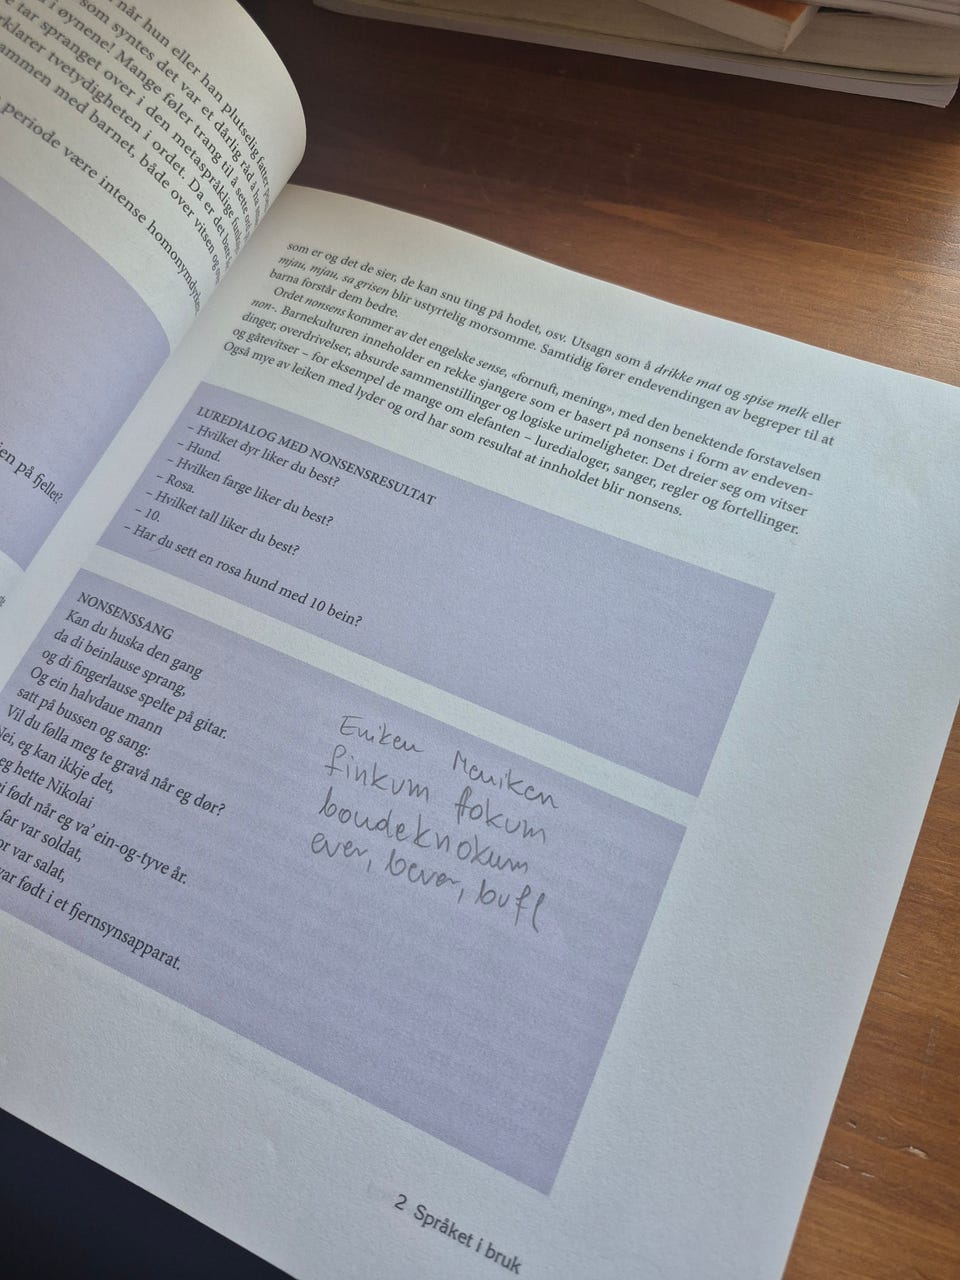 når hun eller han plutselig fatter
som syntes det var et dårlig råd å ha
i øynene! Mange føler trang til å sette
tar spranget over i den metaspråklige
klarer tvetydigheten i ordet. Da er det bare
ammen med barnet, både over vitsen og
periode være intense homonymdyrk
en på fjellet?
som er og det de sier, de kan snu ting på hodet, osv. Utsagn som å drikke mat og spise melk eller
mjau, mjau, sa grisen blir ustyrtelig morsomme. Samtidig fører endevendingen av begreper til at
barna forstår dem bedre.
Ordet nonsens kommer av det engelske sense, «fornuft, mening», med den benektende forstavelsen
non-. Barnekulturen inneholder en rekke sjangere som er basert på nonsens i form av endeven-
dinger, overdrivelser, absurde sammenstillinger og logiske urimeligheter. Det dreier seg om vitser
og gåtevitser – for eksempel de mange om elefanten – luredialoger, sanger, regler og fortellinger.
Også mye av leiken med lyder og ord har som resultat at innholdet blir nonsens.
LUREDIALOG MED NONSENSRESULTAT
– Hvilket dyr liker du best?
– Hund.
– Hvilken farge liker du best?
– Rosa.
– Hvilket tall liker du best?
– 10.
– Har du sett en rosa hund med 10 bein?
NONSENSSANG
Kan du huska den gang
da di beinlause sprang,
og di fingerlause spelte på gitar.
Og ein halvdaue mann
satt på bussen og sang:
Vil du følla meg te gravå når eg dør?
Nei, eg kan ikkje det,
eg hette Nikolai
i født når eg va' ein-og-tyve år.
far var soldat,
or var salat,
var født i et fjernsynsapparat.
Eniken Meniken
finkum fokum
boudeknokum
ever, bever, buff
2 Språket i bruk